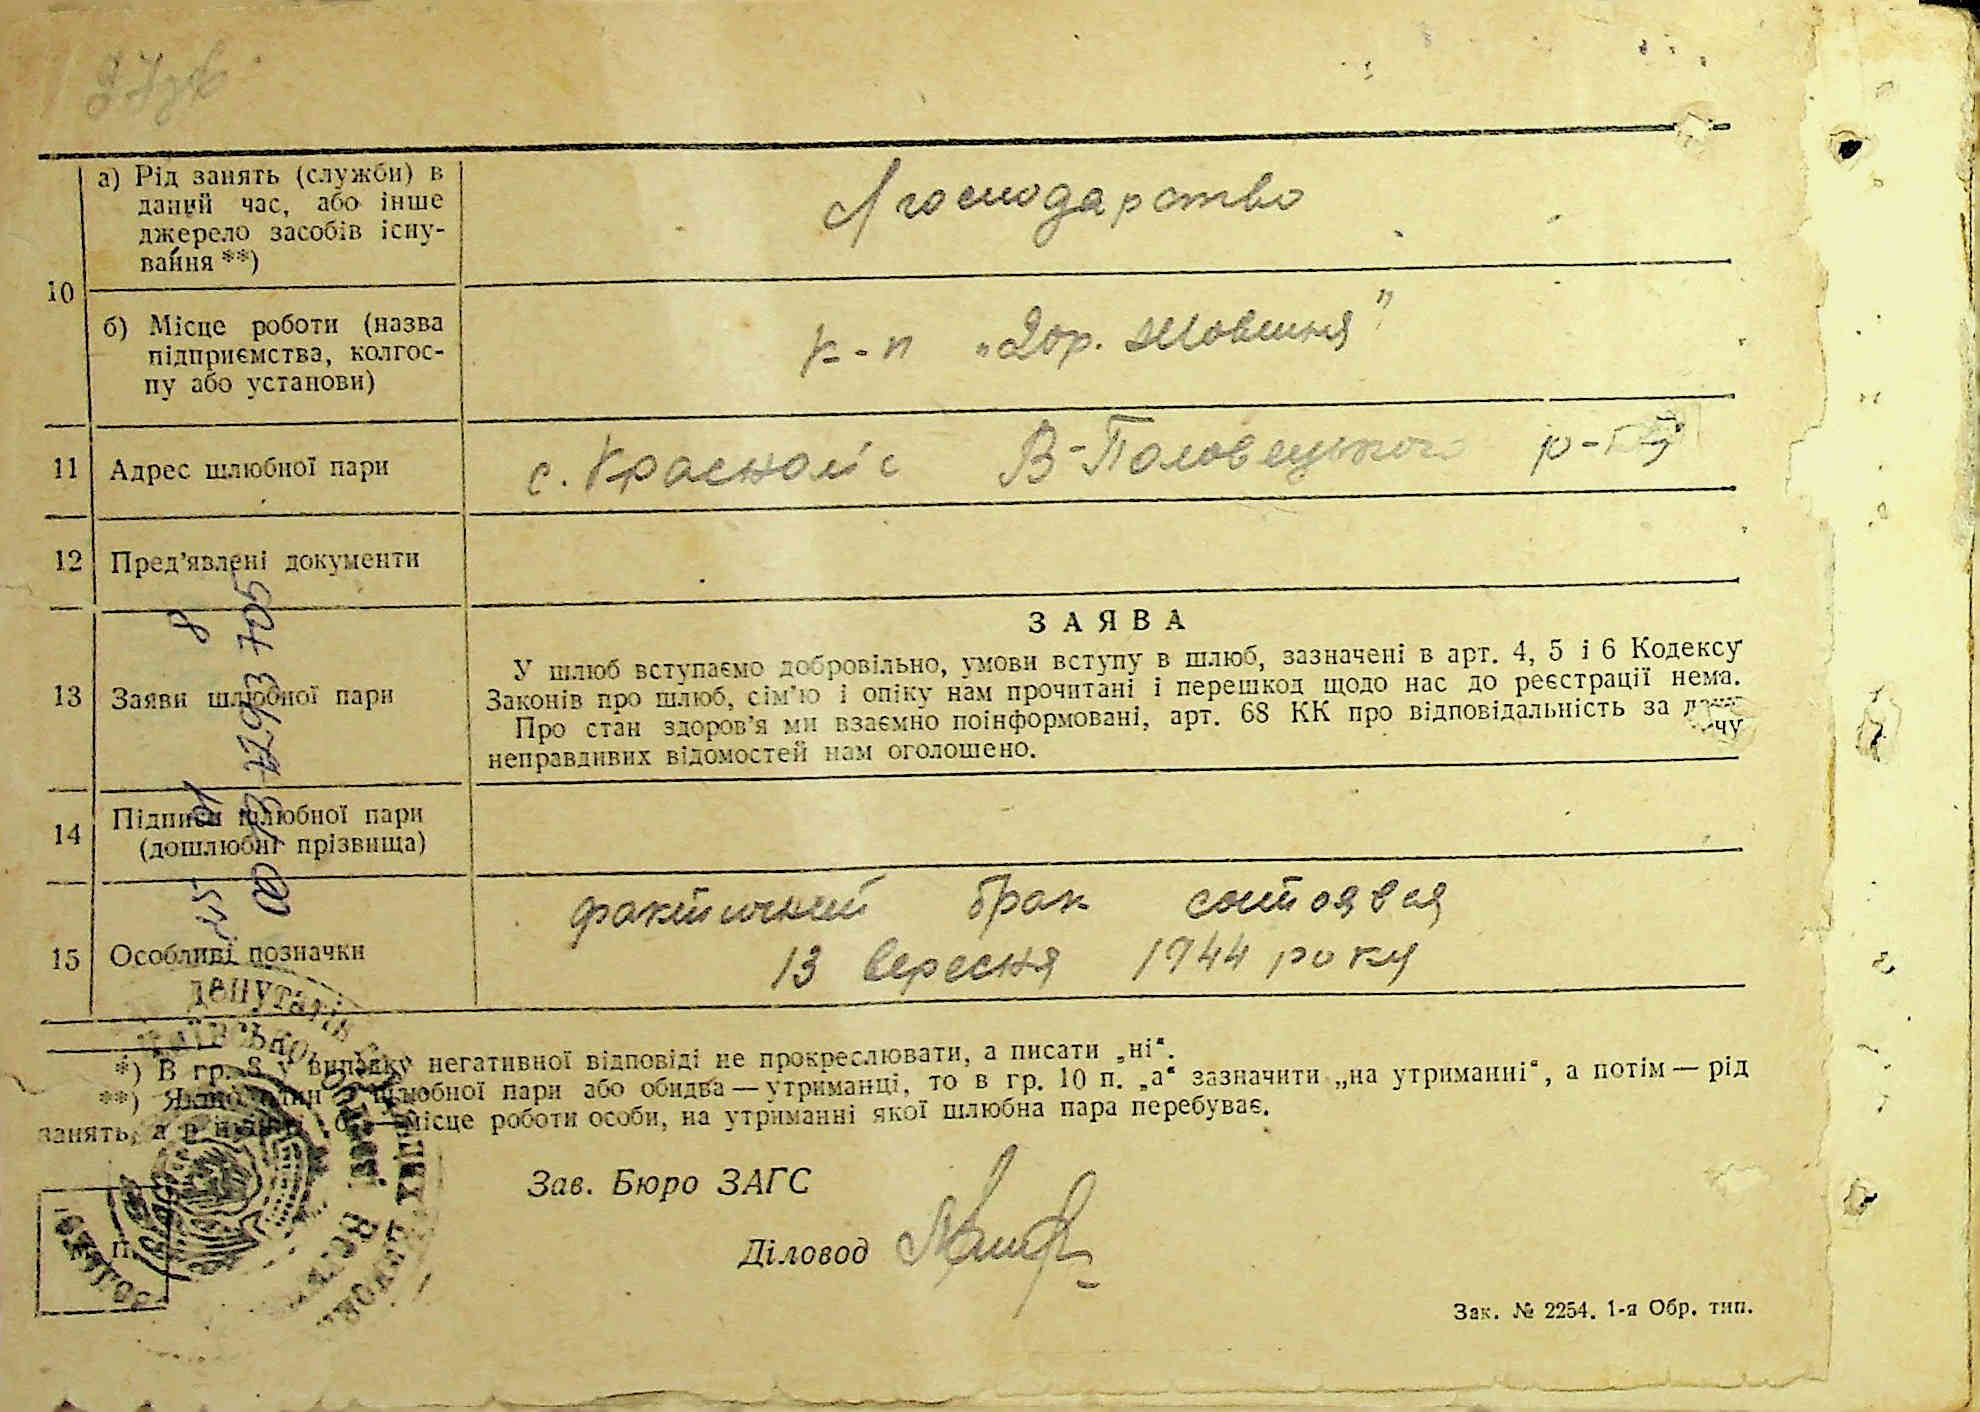 а) Рід занять (служби) в
даний час, або інше
джерело засобів існу-
вання **)
С/господарство
10
б) Місце роботи (назва
підприємства, колгос-
пу або установи)
к-п „Чор. Жовтня"
11 Адрес шлюбної пари
с. Красноліс В-Половецького р-ну
12 Пред'явлені документи
13 Заяви шлюбної пари
ЗАЯВА
У шлюб вступаємо добровільно, умови вступу в шлюб, зазначені в арт. 4, 5 і 6 Кодексу
Законів про шлюб, сім'ю і опіку нам прочитані і перешкод щодо нас до реєстрації нема.
Про стан здоров'я ми взаємно поінформовані, арт. 68 КК про відповідальність за дачу
неправдивих відомостей нам оголошено.
14 Підписи шлюбної пари
(дошлюбні прізвища)
15 Особливі позначки
фактичний брак состоявся
13 вересня 1944 року
*) В гр. 8 у випадку негативної відповіді не прокреслювати, а писати „ні".
**) Якщо один з шлюбної пари або обидва — утриманці, то в гр. 10 п. „а" зазначити „на утриманні", а потім — рід
занять, а в п. „б" — місце роботи особи, на утриманні якої шлюбна пара перебуває.
Зав. Бюро ЗАГС
Діловод
М. П.
Зак. № 2254. 1-я Обр. тип.